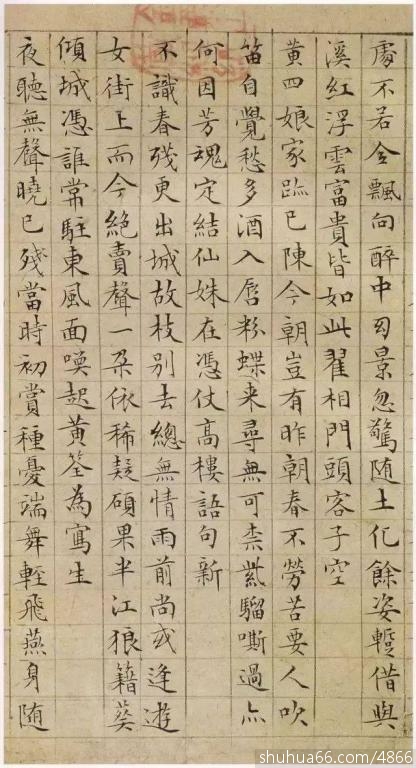 處不若令飄向醉中景忽驚随土化餘姿蹔借與
溪紅浮雲富貴皆如此翟相門頭客子空
黄四娘家跡已陳今朝豈有昨朝春不勞苦要人吹
笛自覺愁多酒入唇粉蝶来尋無可柰紫騮嘶過亦
何因芳魂定結仙姝在憑仗高樓語句新
不識春殘更出城故枝别去總無情雨前尚或逢遊
女街上而今絶賣聲一朶依稀疑碩果半江狼籍葬
傾城憑誰常駐東風面喚起黄筌為寫生
夜聽無聲曉已殘當時初賞種憂端舞輕飛燕身随
shuhua66.com/4866